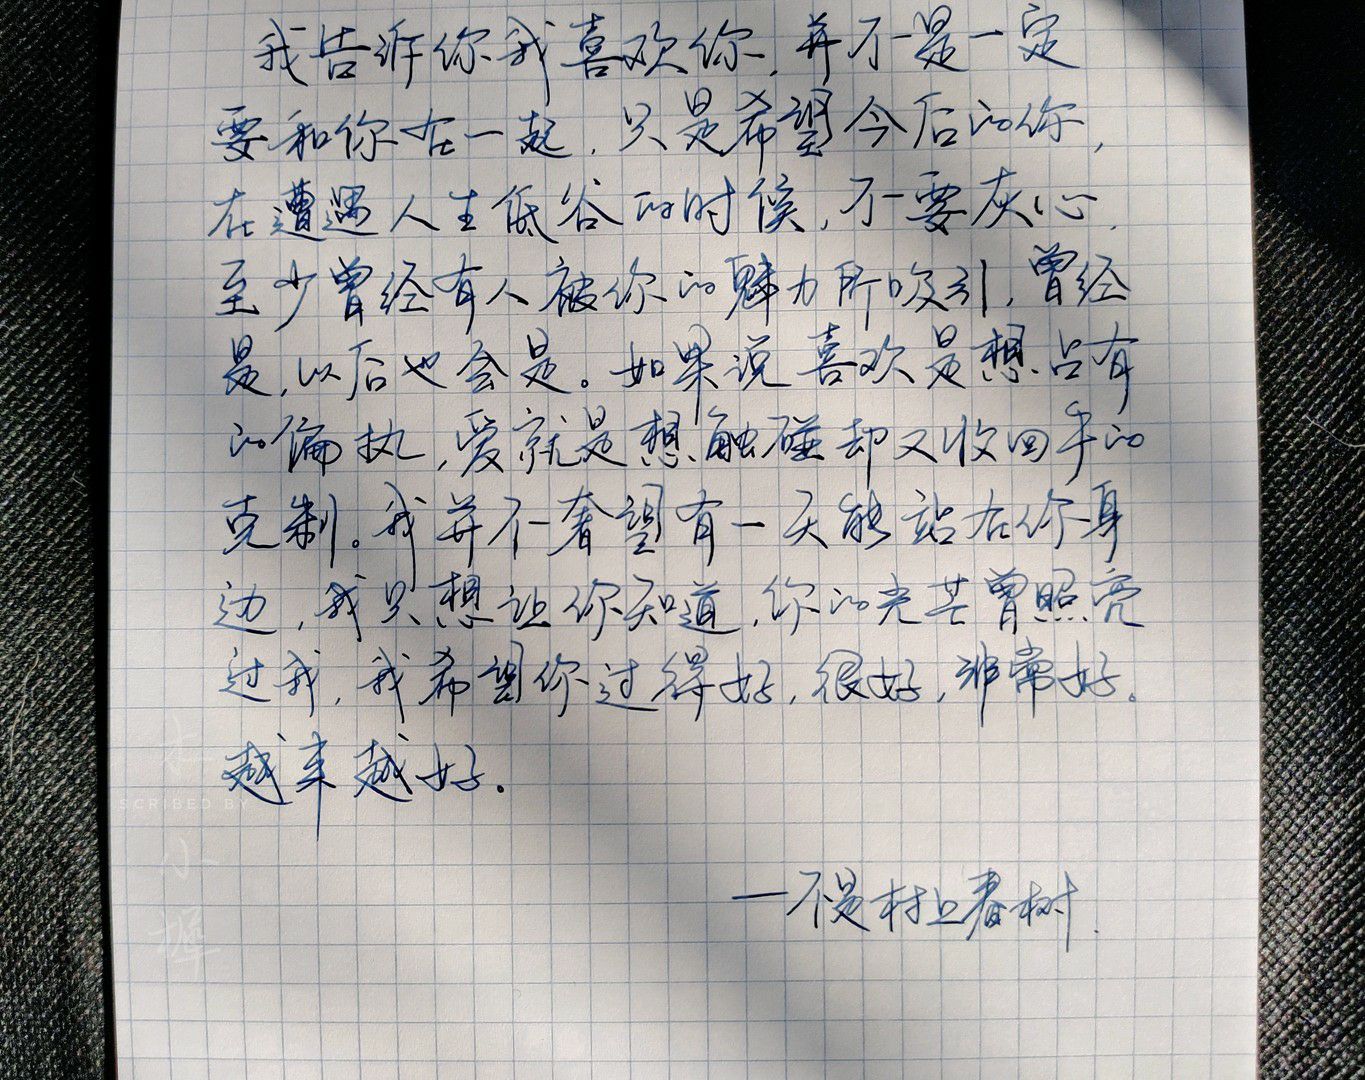 我告诉你我喜欢你,并不是一定
要和你在一起,只是希望今后的你,
在遭遇人生低谷的时候,不要灰心,
至少曾经有人被你的魅力所吸引,曾经
是,以后也会是。如果说喜欢是想占有
的偏执,爱就是想触碰却又收回手的
克制。我并不奢望有一天能站在你身
边,我只想让你知道,你的光芒曾照亮
过我,我希望你过得好,很好,非常好。
越来越好.
—不是村上春树.
木
SCRIBED BY
小
墀